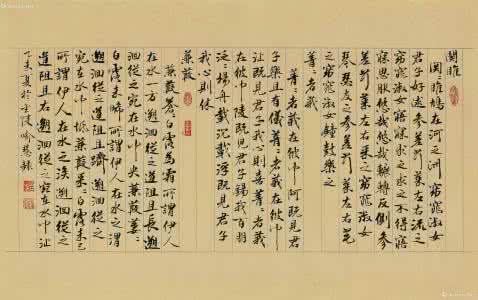 関雎
関〻雎鳩在河之洲窈窕淑女
君子好逑參差荇菜左右流之
窈窕淑女寤寐求之求之不得寤
寐思服悠哉悠哉輾轉反側參
差荇菜左右采之窈窕淑女
琴瑟友之參差荇菜左右芼
之窈窕淑女鐘鼓樂之
菁〻者莪
菁〻者莪在彼中阿既見君
子樂且有儀菁〻者莪在彼中
沚既見君子我心則喜菁〻者莪
在彼中陵既見君子錫我百朋
泛〻楊舟載沉載浮既見君子
我心則休
蒹葭
蒹葭蒼〻白露為霜所謂伊人
在水一方溯洄從之道阻且長溯
洄從之宛在水中央蒹葭萋〻
白露未晞所謂伊人在水之湄
溯洄從之道阻且躋溯洄從之
宛在水中坻蒹葭采〻白露未已
所謂伊人在水之涘溯洄從之
道阻且右溯洄從之宛在水中沚